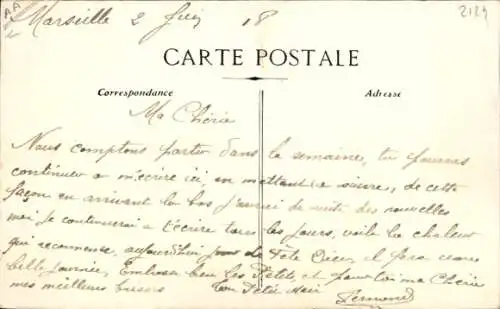 AA
2124
Marseille 2 Juin 18
CARTE POSTALE
Correspondance
Adresse
Ma Chérie
Nous comptons partir dans la semaine, tu pourras
continuer a m'écrire ici, en mettant , de cette
façon en arrivant la bas j'aurai de suite des nouvelles
moi je continuerai a t'écrire tous les jours, voila la chaleur
qui recommence, aujourd'hui jour de Fete Dieu, il fera
belle journée, Embrasse bien les Petits, et pour toi ma Chérie
mes meilleurs baisers Ton Petit Mari
Fernand